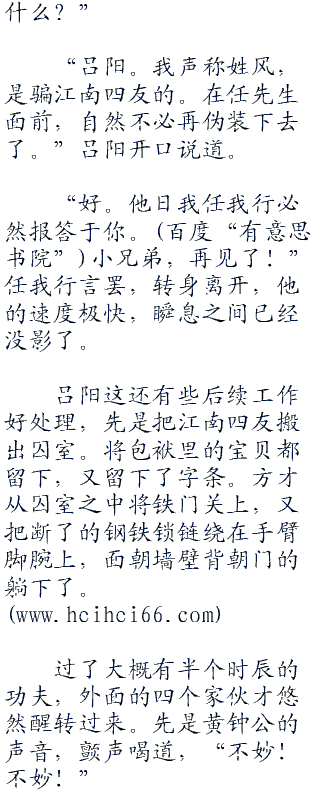 什么？”
“吕阳。我声称姓风，
是骗江南四友的。在任先生
面前，自然不必再伪装下去
了。”吕阳开口说道。
“好。他日我任我行必
然报答于你。(百度“有意思
书院”)小兄弟，再见了！”
任我行言罢，转身离开，他
的速度极快，瞬息之间已经
没影了。
吕阳这还有些后续工作
好处理，先是把江南四友搬
出囚室。将包袱里的宝贝都
留下，又留下了字条。方才
从囚室之中将铁门关上，又
把断了的钢铁锁链绕在手臂
脚腕上，面朝墙壁背朝门的
躺下了。
(www.hcihci66.com)
过了大概有半个时辰的
功夫，外面的四个家伙才悠
然醒转过来。先是黄钟公的
声音，颤声喝道，“不妙！
不妙！”